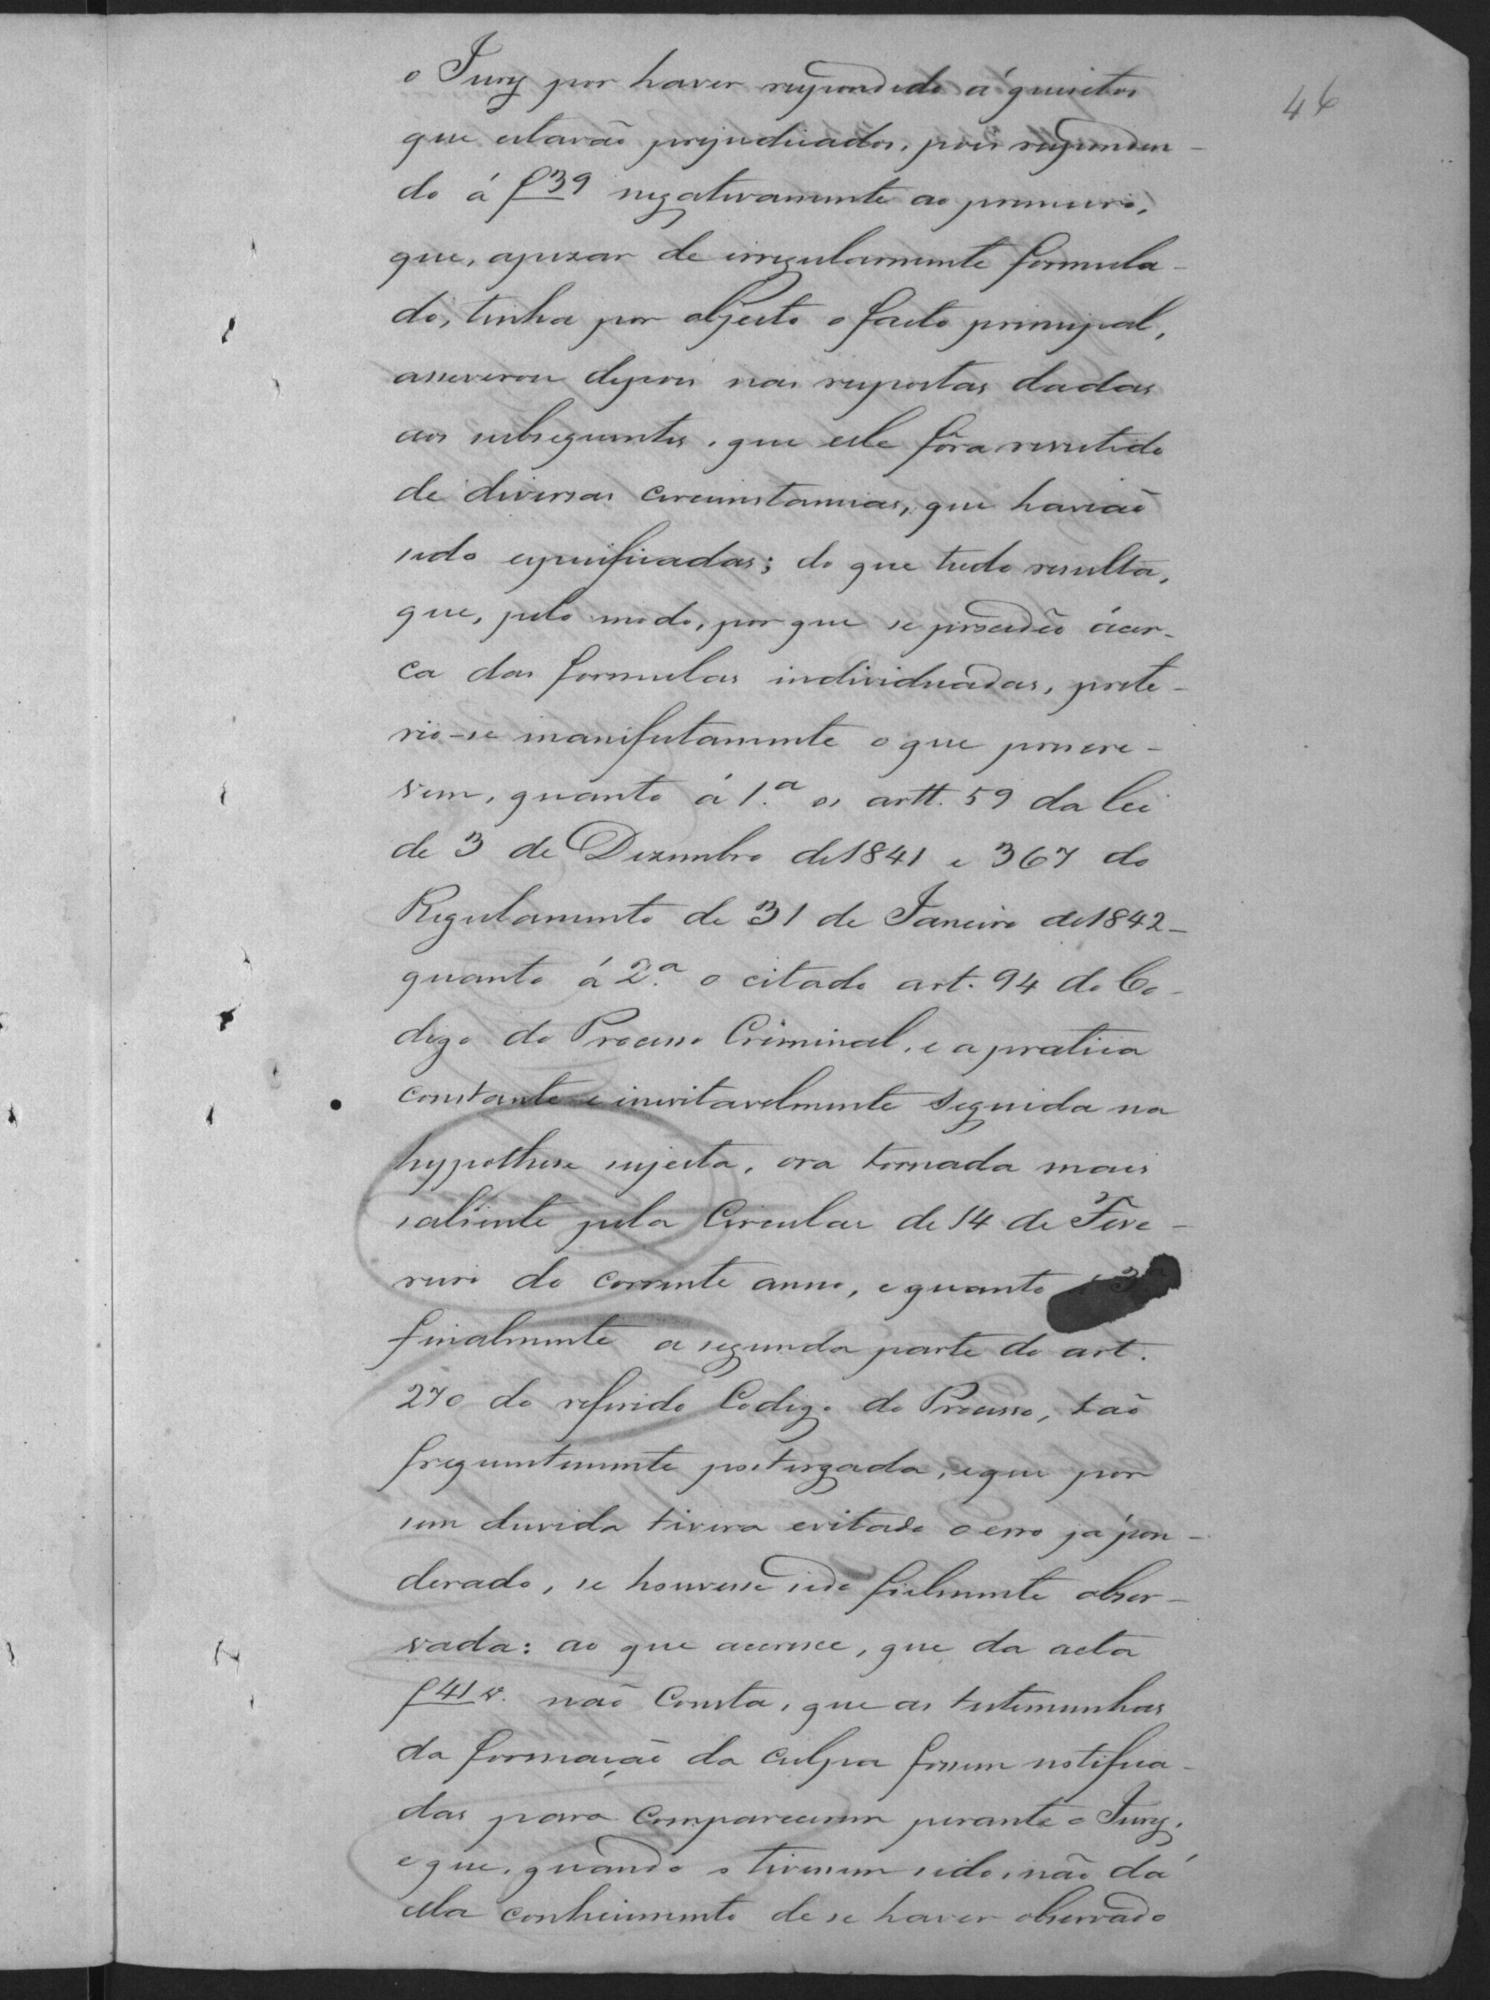 46
o Jury por haver respondido á quisitos
que estavão prejudicados, pois responden-
do á f 39 negativamente ao primeiro,
que, apezar de irregularmente formula-
do, tinha por objecto o facto principal,
asseverou depois nas respostas dadas
aos subsequentes, que elle fôra revestido
de diversas circumstancias, que havião
sido especificadas; do que tudo resulta,
que, pelo modo, por que se procedêo ácer-
ca das formulas individuadas, prete-
rio-se manifestamente o que prescre-
vem, quanto á 1.ª os artt. 59 da lei
de 3 de Dezembro de 1841 e 367 do
Regulamento de 31 de Janeiro de 1842-
quanto á 2.ª o citado art. 94 do Co-
digo do Processo Criminal, e a pratica
constante e inevitavelmente seguida na
hypothese sujeita, ora tornada mais
saliente pela Circular de 14 de Feve-
reiro do corrente anno, e quanto á 3ª
finalmente a segunda parte do art.
270 do referido Codigo do Processo, tão
frequentemente postergada, e que por
sem duvida tivera evitado o erro já pon-
derado, se houvesse sido fielmente obser-
vada: ao que accresce, que da acta
f 41 v. não Consta, que as testemunhas
da formação da culpa fossem notifica-
das para comparecerem perante o Jury,
e que, quando o tivessem sido, não dá
ella conhecimento de se haver observado